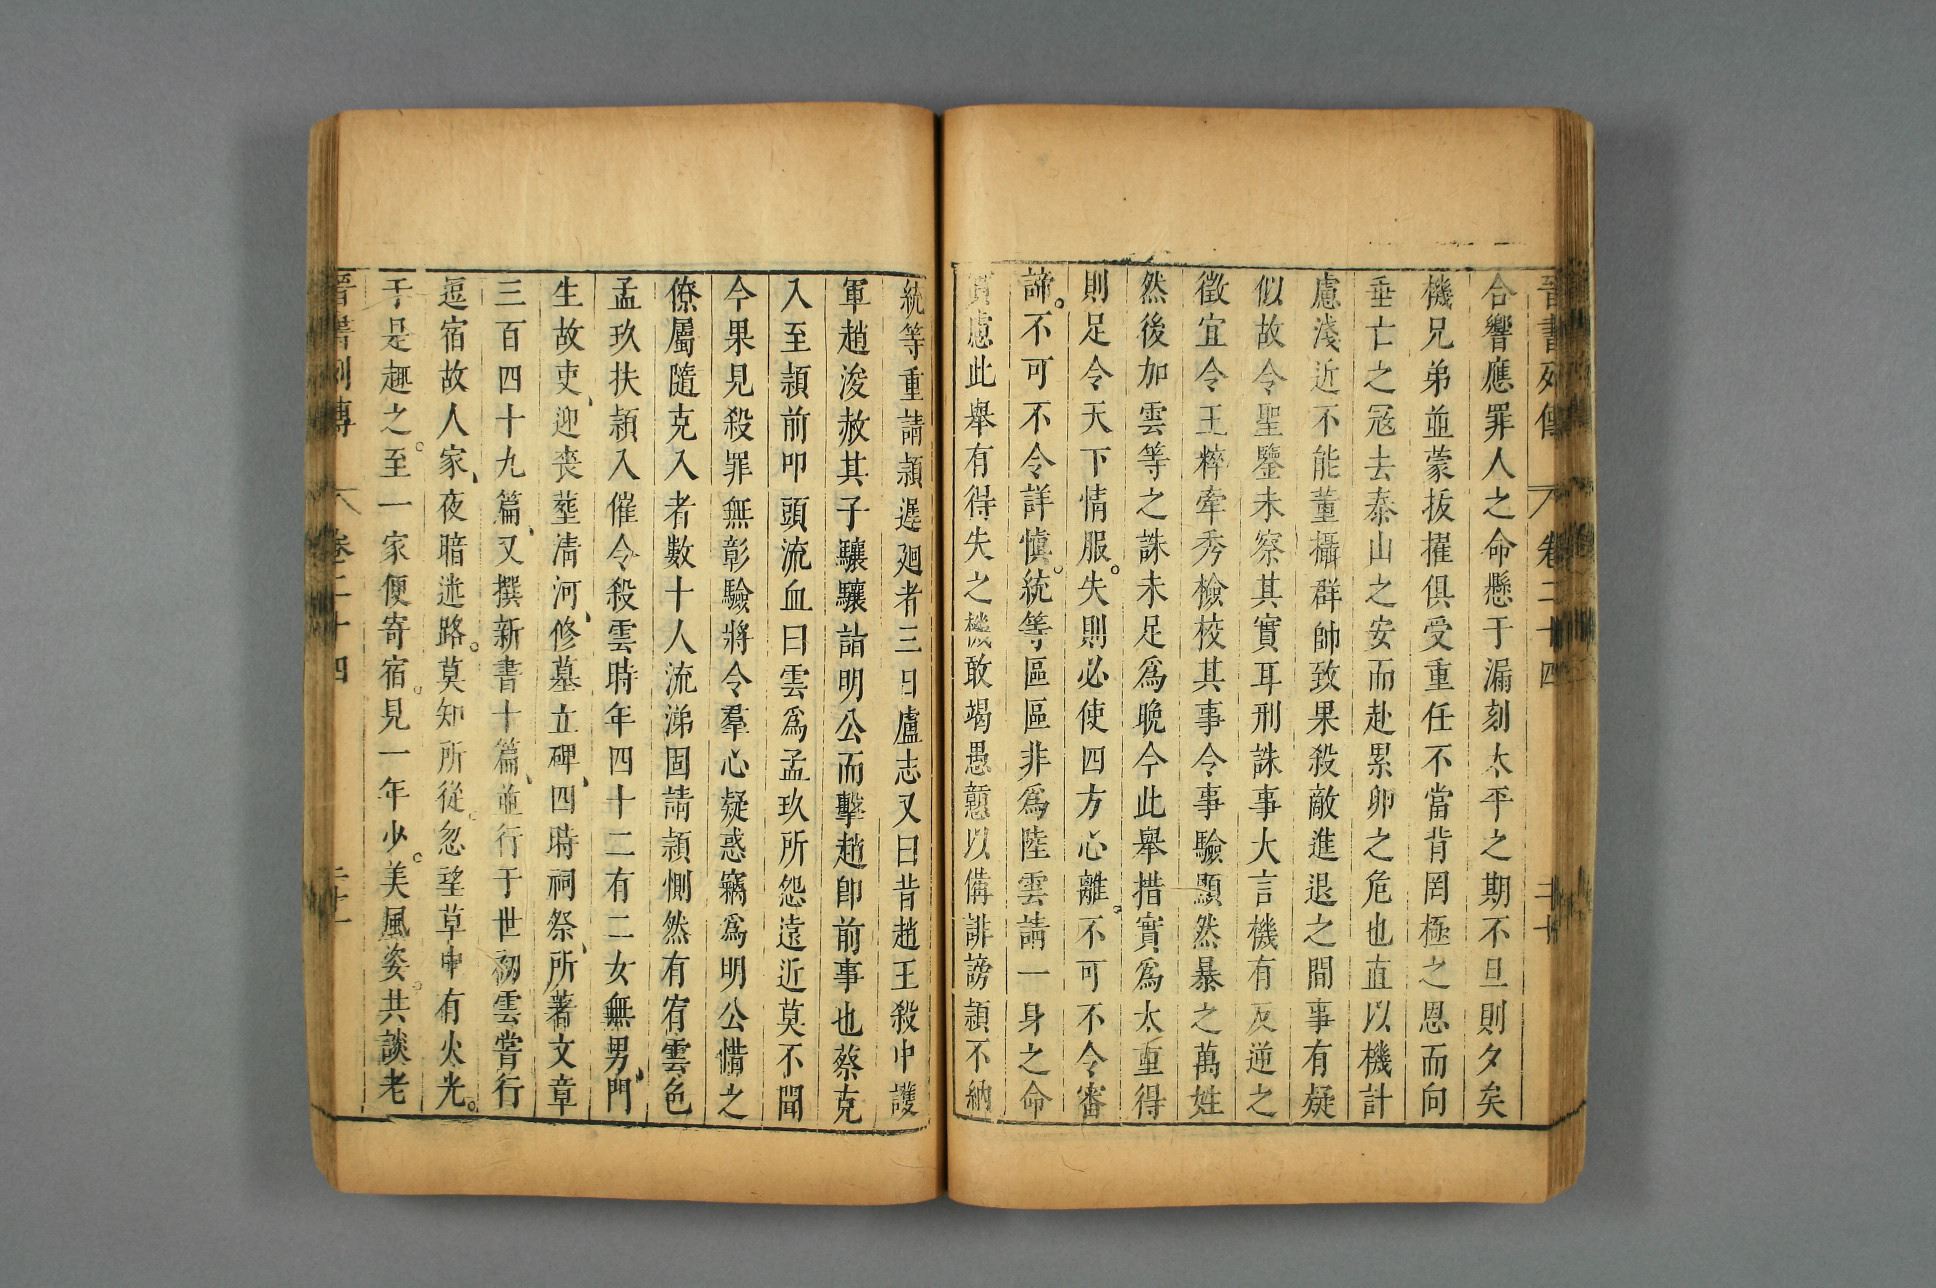 晉書列傳 卷二十四 二十
合響應罪人之命懸于漏刻太平之期不旦則夕矣
機兄弟並蒙拔擢俱受重任不當背罔極之恩而向
垂亡之寇去泰山之安而赴累卵之危也直以機計
慮淺近不能董攝群帥致果殺敵進退之間事有疑
似故令聖鑒未察其實耳刑誅事大言機有反逆之
徵宜令王粹牽秀檢校其事令事驗顯然暴之萬姓
然後加雲等之誅未足爲晚今此舉措實爲太重得
則足令天下情服。失則必使四方心離。不可不令審
諦。不可不令詳慎。統等區區非爲陸雲請一身之命
實慮此舉有得失之機敢竭愚戇以備誹謗穎不納
統等重請穎遲迴者三日盧志又曰昔趙王殺中護
軍趙浚赦其子驤驤詣明公而擊趙卽前事也蔡克
入至穎前叩頭流血曰雲爲孟玖所怨遠近莫不聞
今果見殺罪無彰驗將令羣心疑惑竊爲明公惜之
僚屬隨克入者數十人流涕固請穎惻然有宥雲色
孟玖扶穎入催令殺雲時年四十二有二女無男、門
生故吏、迎喪葬清河、修墓立碑、四時祠祭、所著文章
三百四十九篇、又撰新書十篇、並行于世初雲嘗行
逗宿故人家、夜暗迷路。莫知所從。忽望草中有火光。
于是趣之。至一家便寄宿。見一年少。美風姿。共談老
晉書列傳 卷二十四